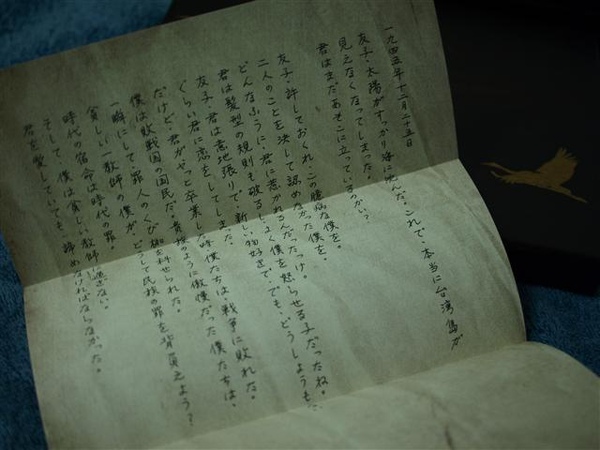 一九四五年十二月二十五日
友子、太陽がすっかり海に沈んだ。これで、本当に台湾島が
見えなくなってしまった。
君はまだあそこに立っているのかい?
友子、許しておくれ、この臆病な僕を。
二人のことを決して認めなかった僕を。
どんなふうに、君に惹かれるんだったっけ。
君は髪型の規則も破るし、よく僕を怒らせる子だったね。
友子、君は意地張りで、新しい物好きで、でも、どうしようも
ぐらい君に恋をしてしまった。
だけど、君がやっと卒業した時、僕たちは、戦争に敗れた。
僕は敗戦国の国民だ。貴族のように傲慢だった僕たちは、
一瞬にして、罪人のくび枷を科せられた。
貧しい一教師の僕が、どうして民族の罪を背負えよう?
時代の宿命は時代の罪。
そして、僕は貧しい教師に過ぎない。
君を愛していても、諦めなければならなかった。